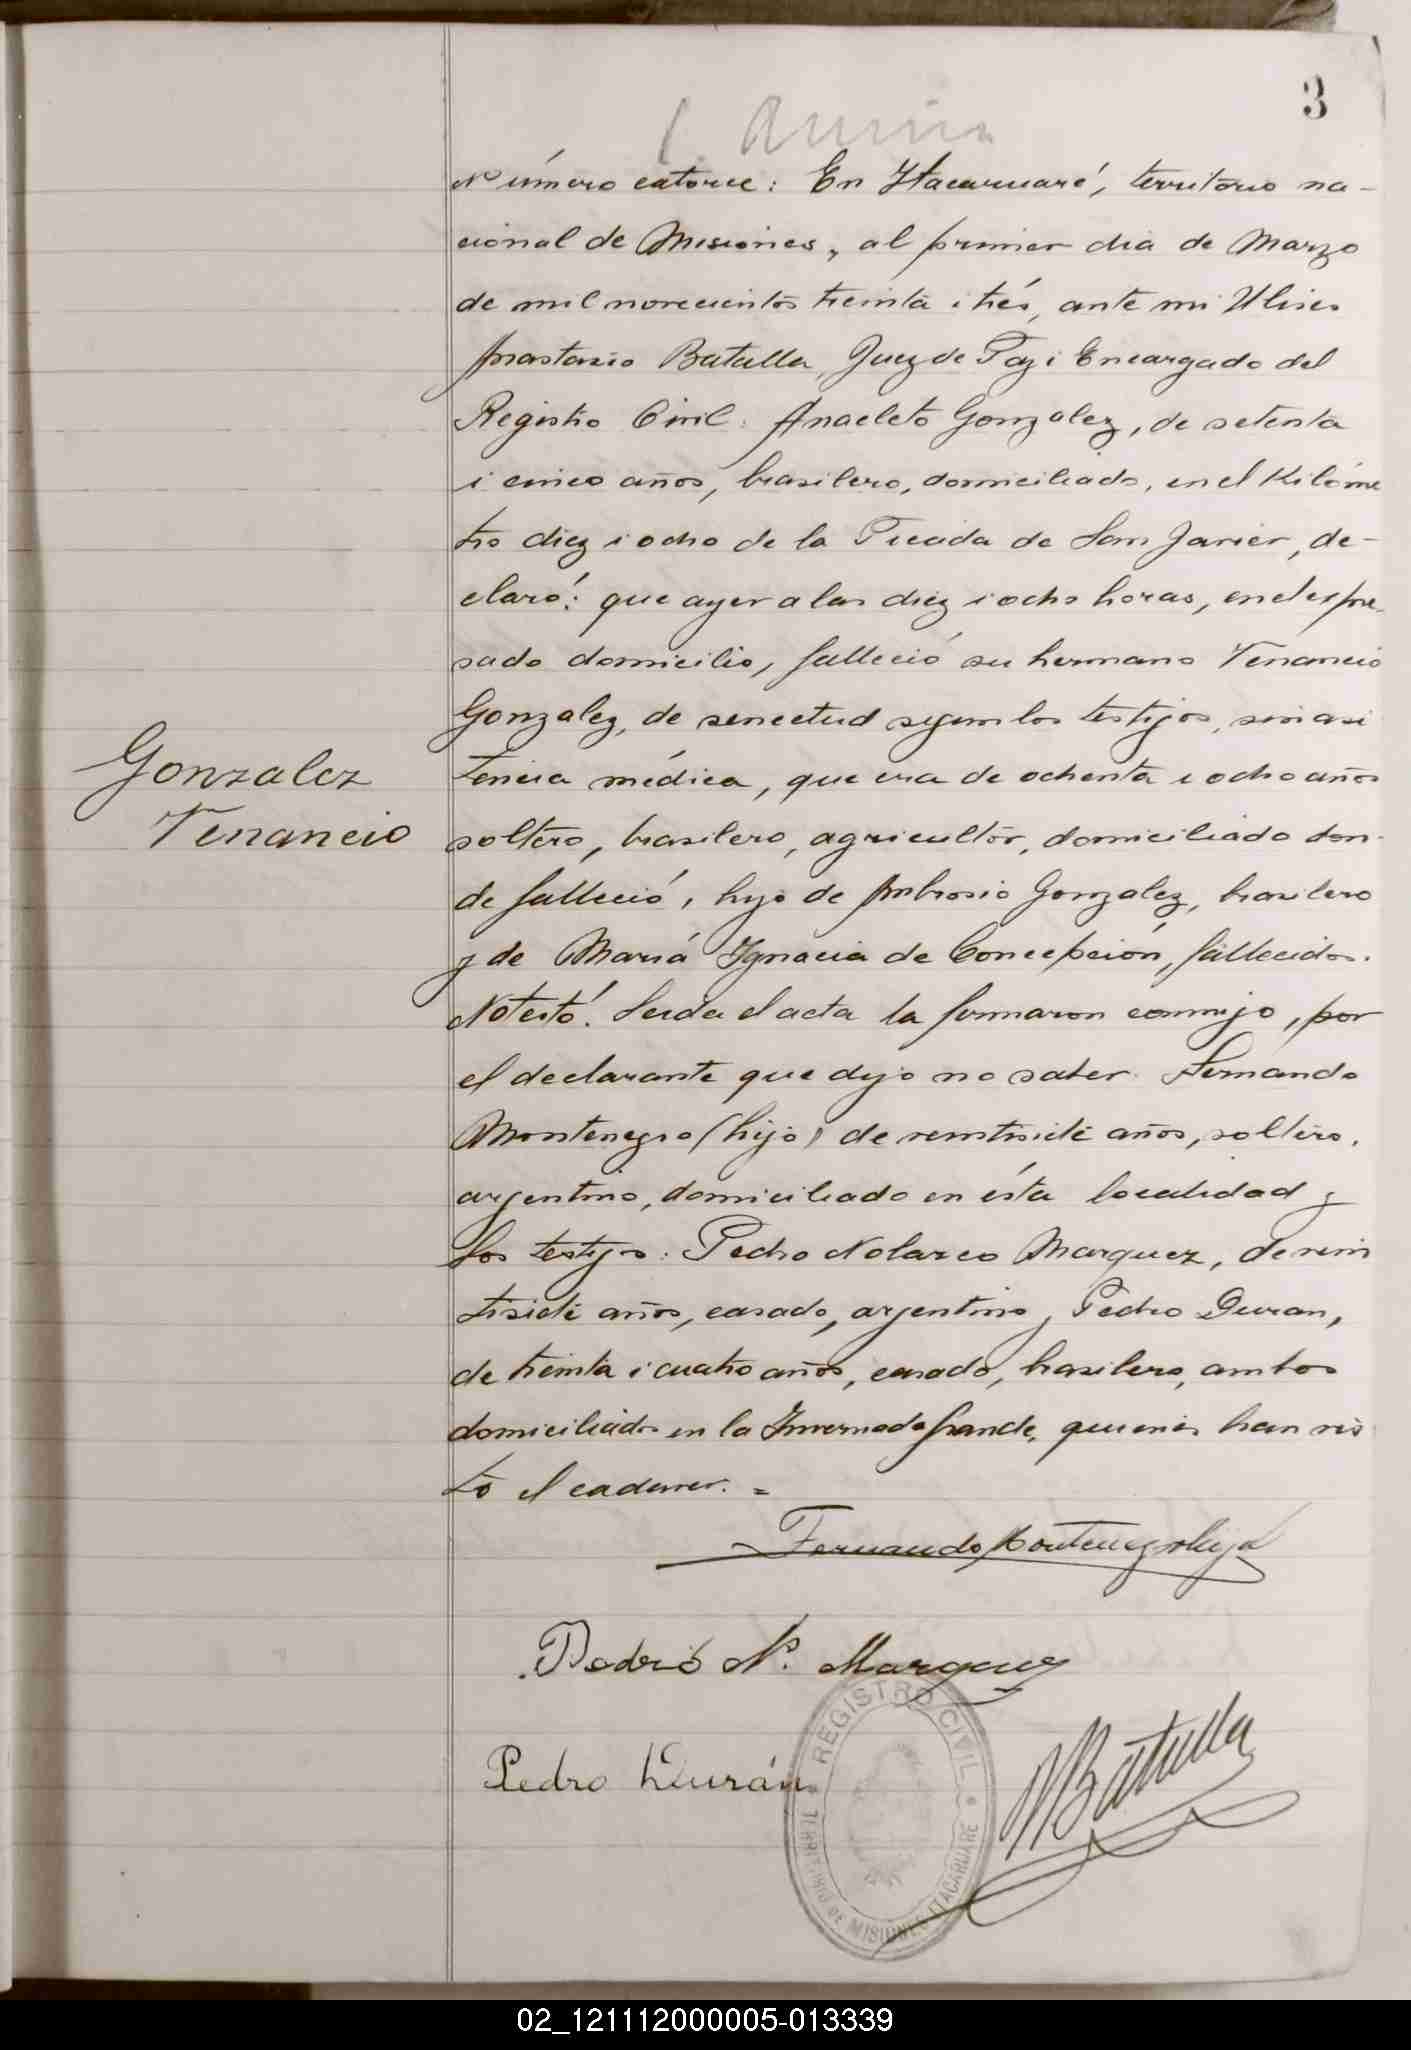 3
Número catorce: En Itacaruaré, territorio na-
cional de Misiones, al primer dia de Marzo
de mil novecientos treinta i trés, ante mi Ulises
Anastasio Batalla, Juez de Paz i Encargado del
Registro Civil: Anacleto Gonzalez, de setenta
i cinco años, brasilero, domiciliado, en el Kilóme
tro diez i ocho de la Picada de San Javier, de-
claró: que ayer a las diez i ocho horas, en el expre
sado domicilio, falleció su hermano Venancio
Gonzalez, de senectud segun los testijos, sin asi
tencia médica, que era de ochenta i ocho años
Gonzalez
Venancio
soltero, brasilero, agricultor, domiciliado don-
de falleció, hijo de Ambrosio Gonzalez, brasilero
y de María Ignacia de Concepción, fallecidos.
No testó. Leida el acta la firmaron conmijo, por
el declarante que dijo no saber. Fernando
Montenegro (hijo) de veintisiete años, soltero,
arjentino, domiciliado en ésta localidad y
los testijos: Pedro Nolazco Marquez, de vein
tisiete años, casado, arjentino y Pedro Duran,
de treinta i cuatro años, casado, brasilero, ambos
domiciliados en la Invernada Grande, quienes han vis
to el cadaver. =
Fernando Montenegro hijo
Pedro N. Marquez
Pedro Durán
Batalla
REGISTRO CIVIL
TERRITORIO DE MISIONES ITACARUARE
02_121112000005-013339